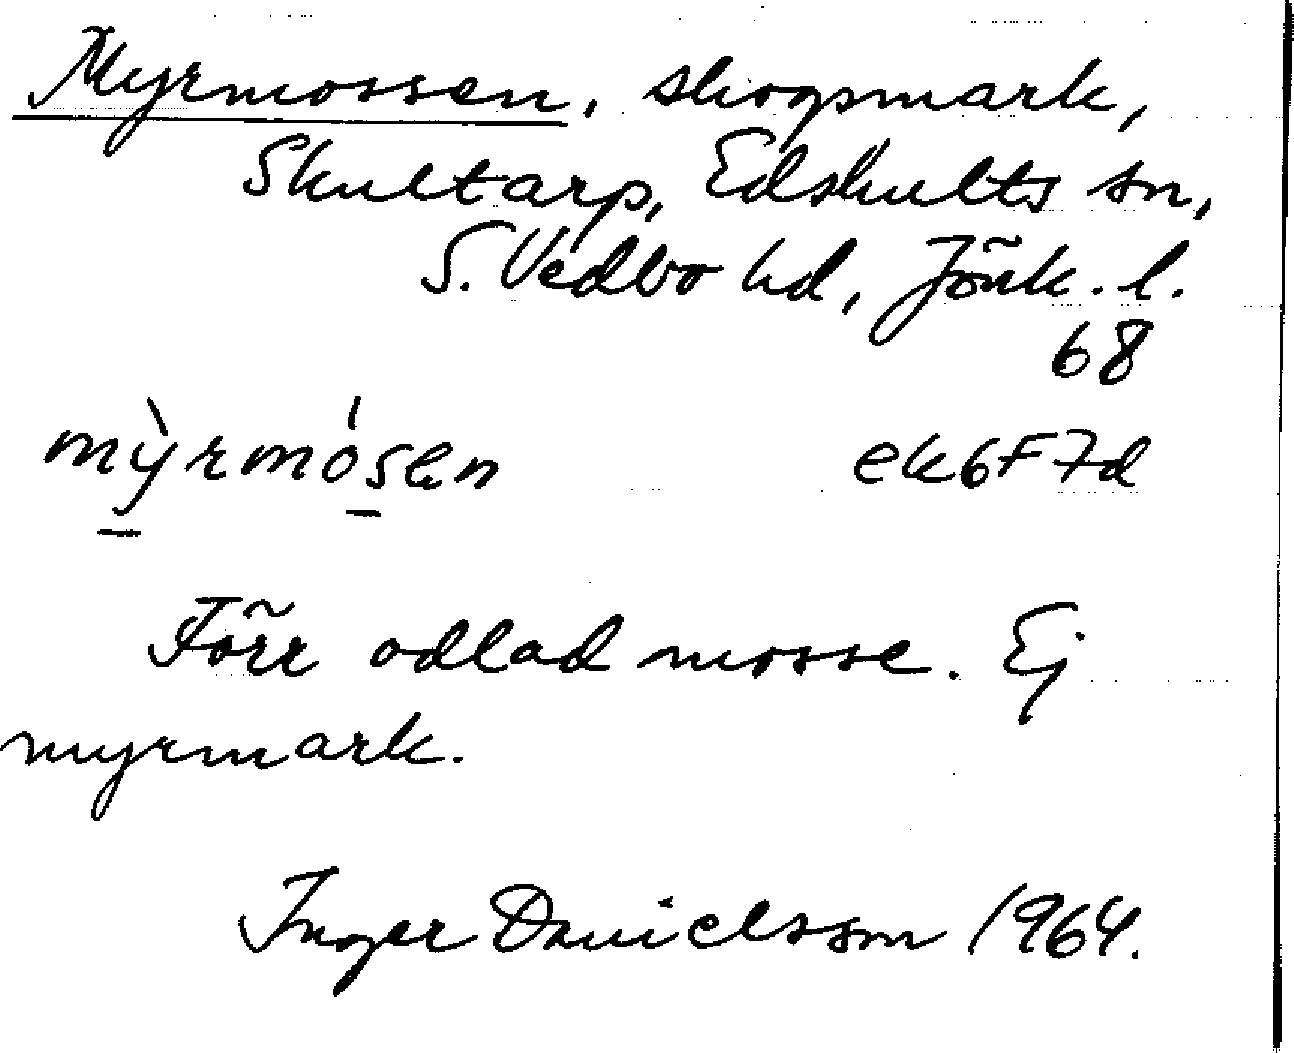 Myrmossen, skogsmark,
Skultarp, Edshults sn,
S. Vedbo hd, Jönk. l.
68
mỳrmósen ek6F7d
Förr odlad mosse. Ej
myrmark.
Inger Danielsson 1964.